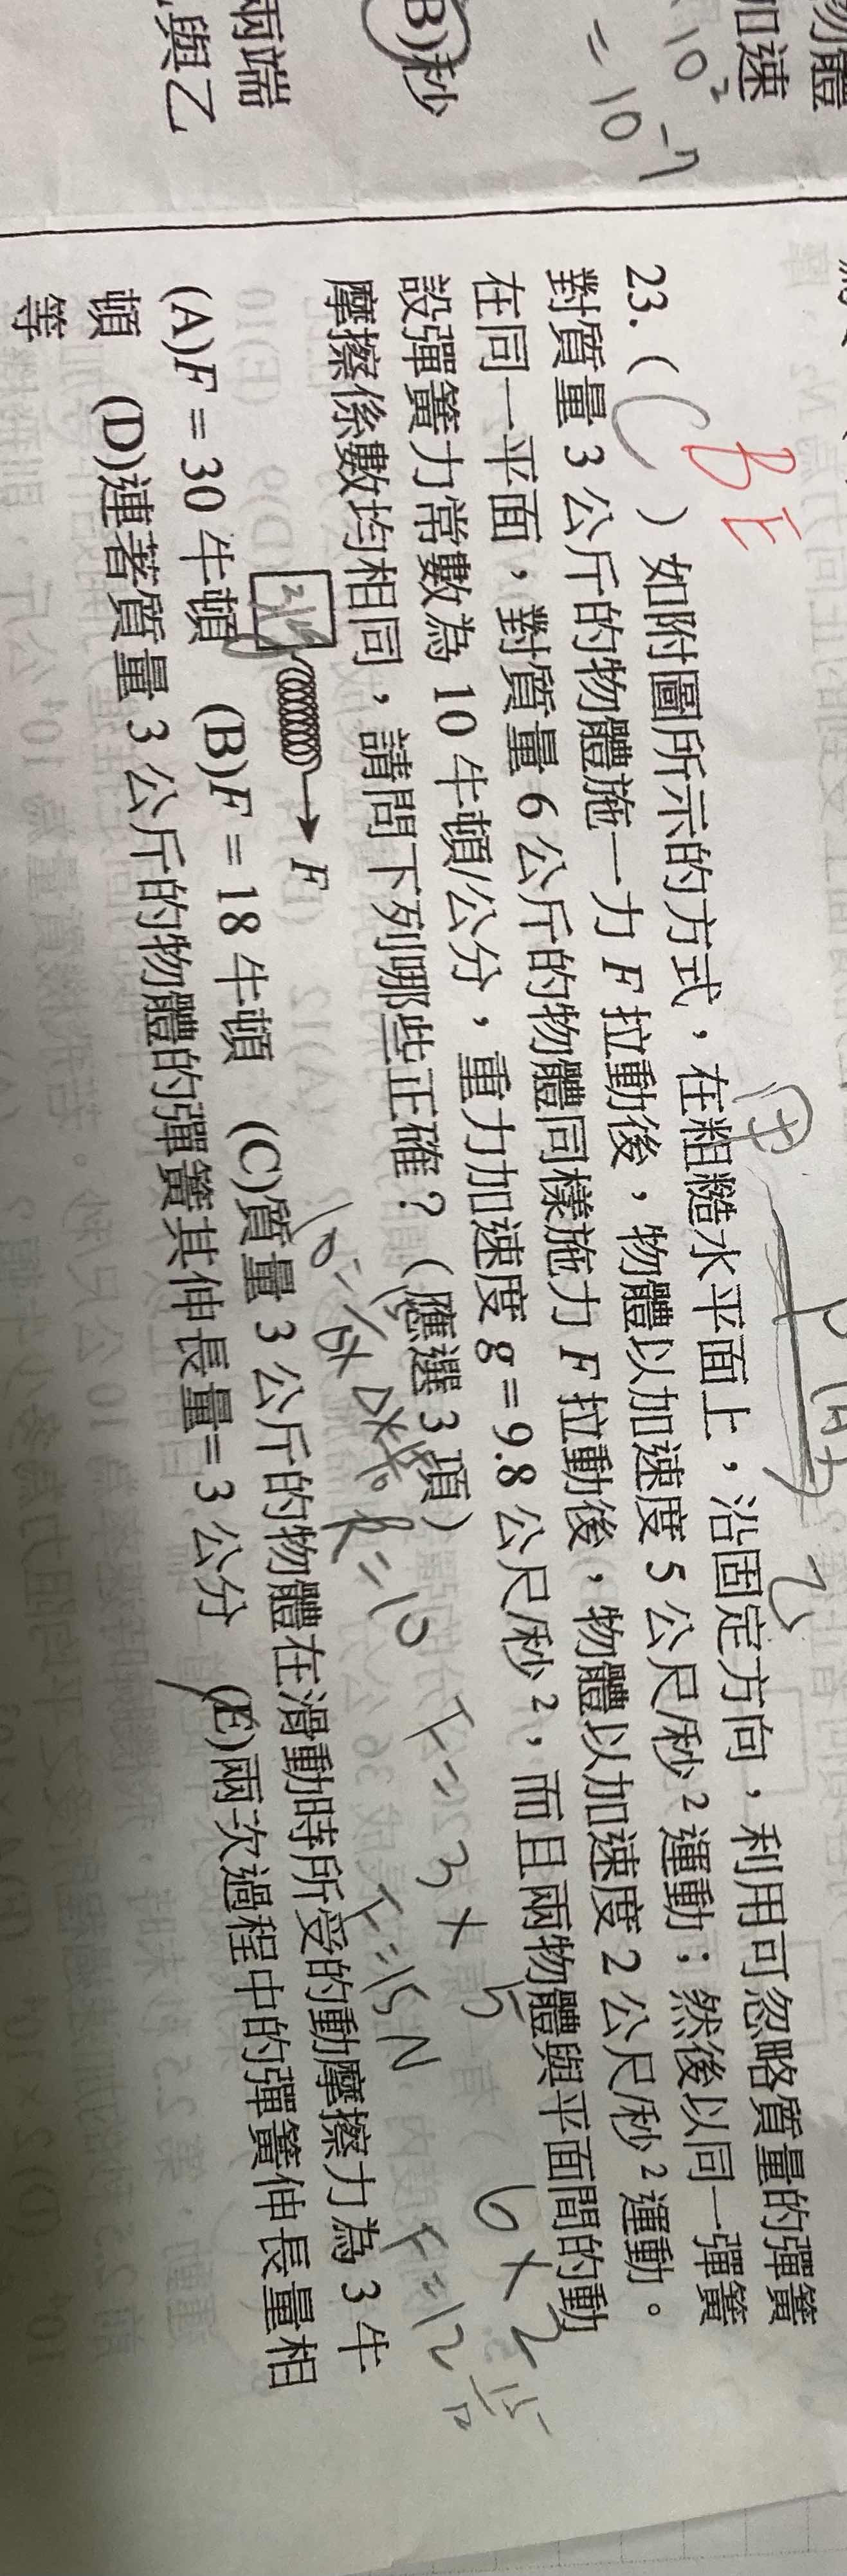 物體
加速
10²
= 10⁻⁷
(B)秒
兩端
與乙
BE
23.( C )如附圖所示的方式，在粗糙水平面上，沿固定方向，利用可忽略質量的彈簧
對質量 3 公斤的物體施一力 F 拉動後，物體以加速度 5 公尺/秒² 運動；然後以同一彈簧
在同一平面，對質量 6 公斤的物體同樣施力 F 拉動後，物體以加速度 2 公尺/秒² 運動。
設彈簧力常數為 10 牛頓/公分，重力加速度 g = 9.8 公尺/秒²，而且兩物體與平面間的動
摩擦係數均相同，請問下列哪些正確？（應選 3 項）
F
(A)F = 30 牛頓 (B)F = 18 牛頓 (C)質量 3 公斤的物體在滑動時所受的動摩擦力為 3 牛
頓 (D)連著質量 3 公斤的物體的彈簧其伸長量= 3 公分 (E)兩次過程中的彈簧伸長量相
等
甲
乙
k = 10
F = 3 × 5
F = 15 N
6 × 2
F = 12